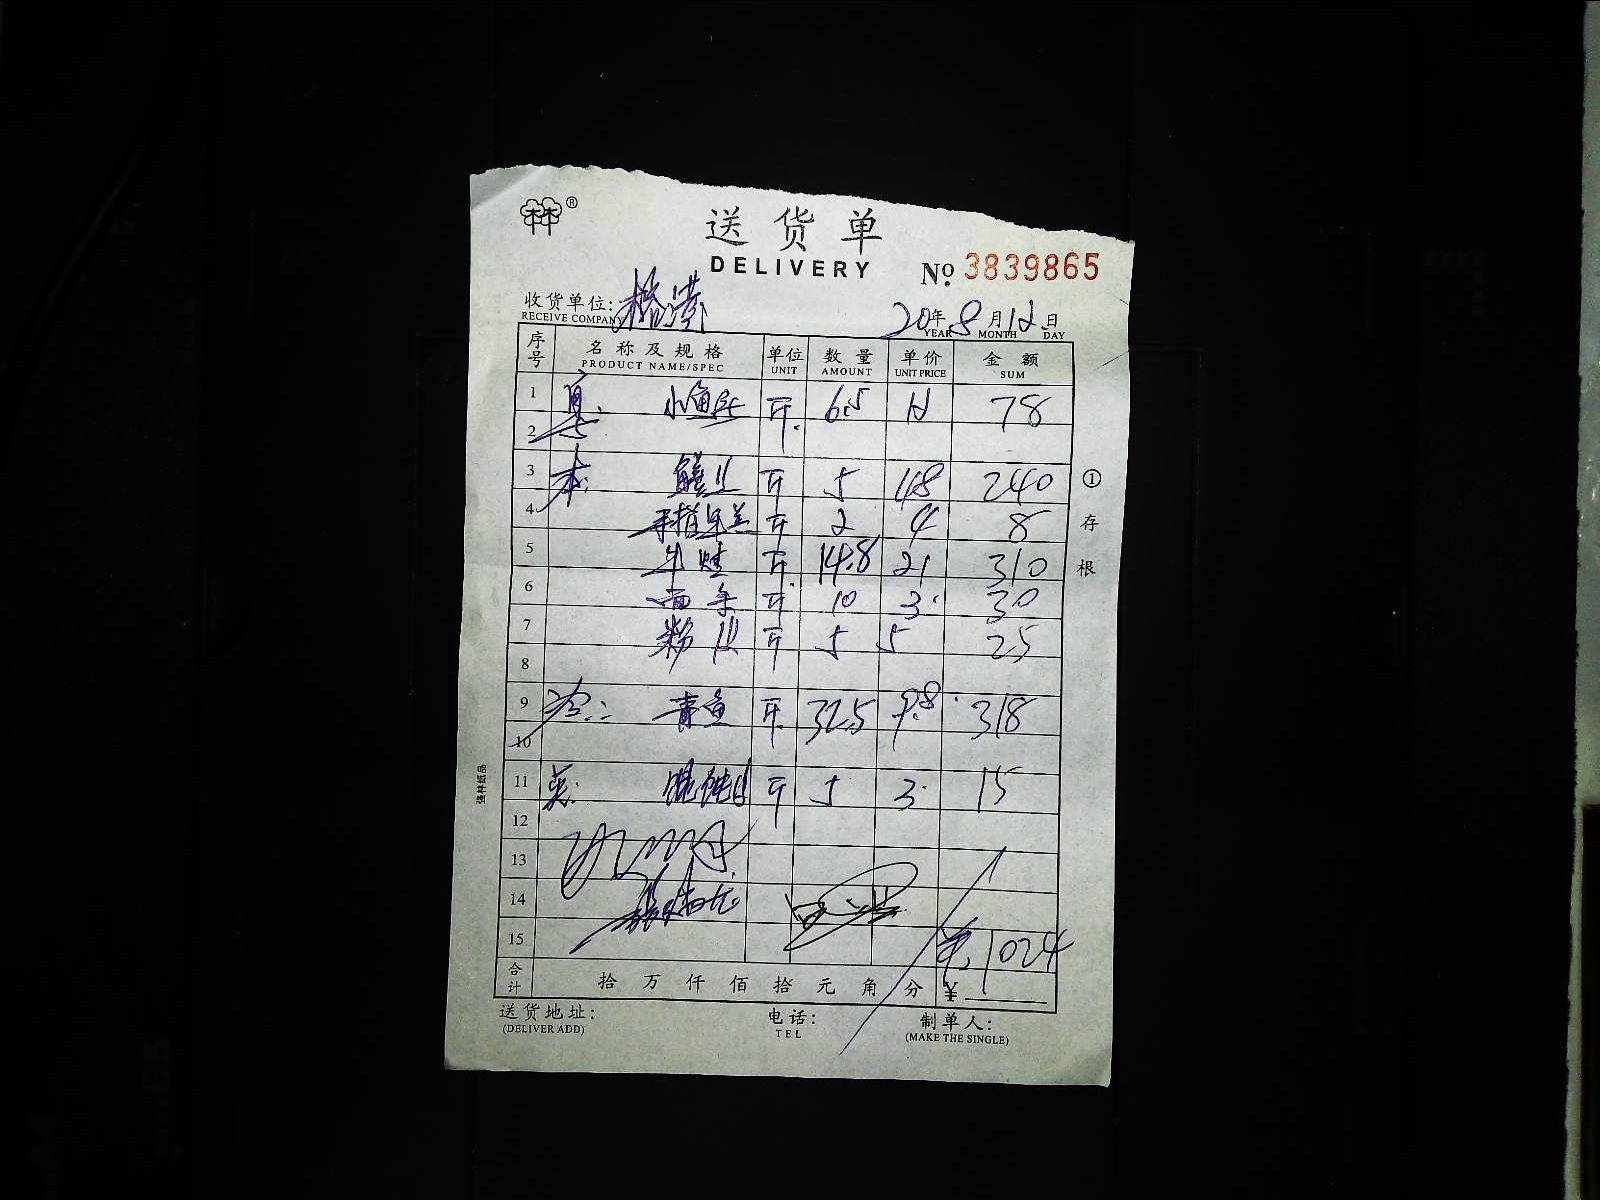 林®
送货单
DELIVERY
No. 3839865
收货单位:
RECEIVE COMPANY
20年8月12日
YEAR MONTH DAY
序号 名称及规格 单位 数量 单价 金额
PRODUCT NAME/SPEC UNIT AMOUNT UNIT PRICE SUM
1 斤 6.5 12 78
2
3 本: 鳝丝 斤 5 48 240
4 斤 2 4 8
5 牛蛙 斤 14.8 21 310
6 面条 斤 10 3 30
7 粉丝 斤 5 5 25
8
9 青鱼 斤 32.5 9.8 318
10
11 馄饨皮 斤 5 3 15
12
13
14
15 1024
合计 拾万仟佰拾元角分 ¥
送货地址: 电话: 制单人:
(DELIVER ADD) TEL (MAKE THE SINGLE)
①存根
强林纸品